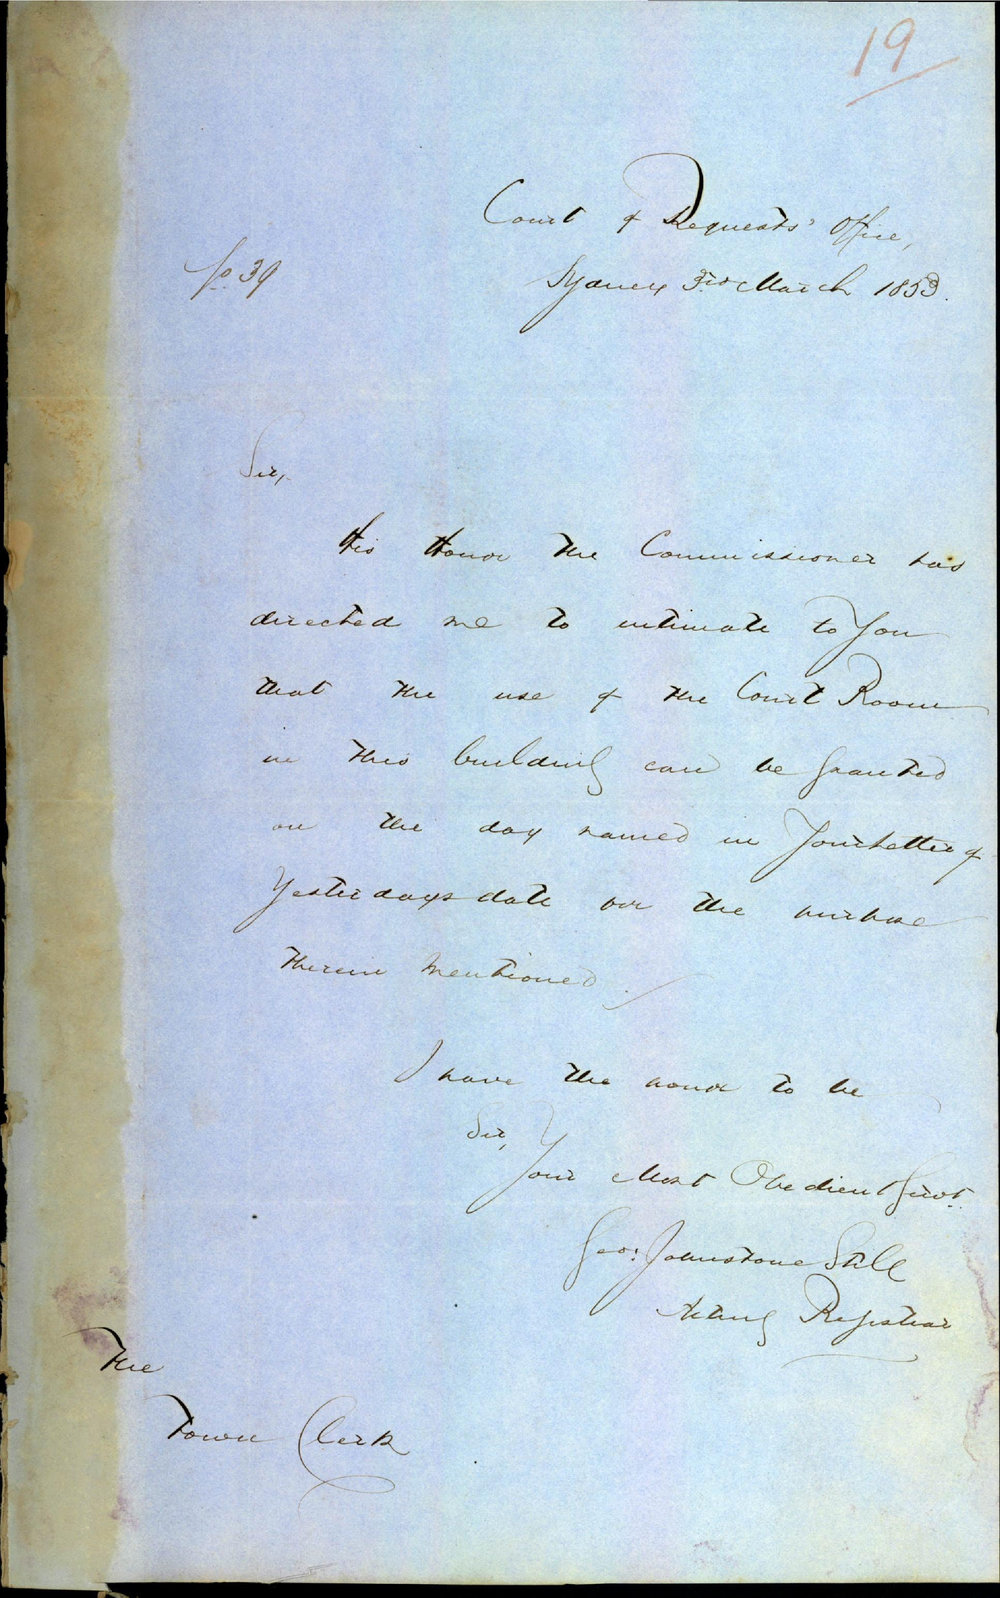 19
Court of Requests' Office,
No 39
Sydney 3rd March 1853.
Sir,
His Honor the Commissioner has
directed me to intimate to You
that the use of the Court Room
in this building can be granted
on the day named in Your Letter of
Yesterdays date for the purpose
therein mentioned.
I have the honor to be
Sir,
Your Most Obedient Servt.
Geo: Johnstone Still
Acting Registrar
The
Town Clerk